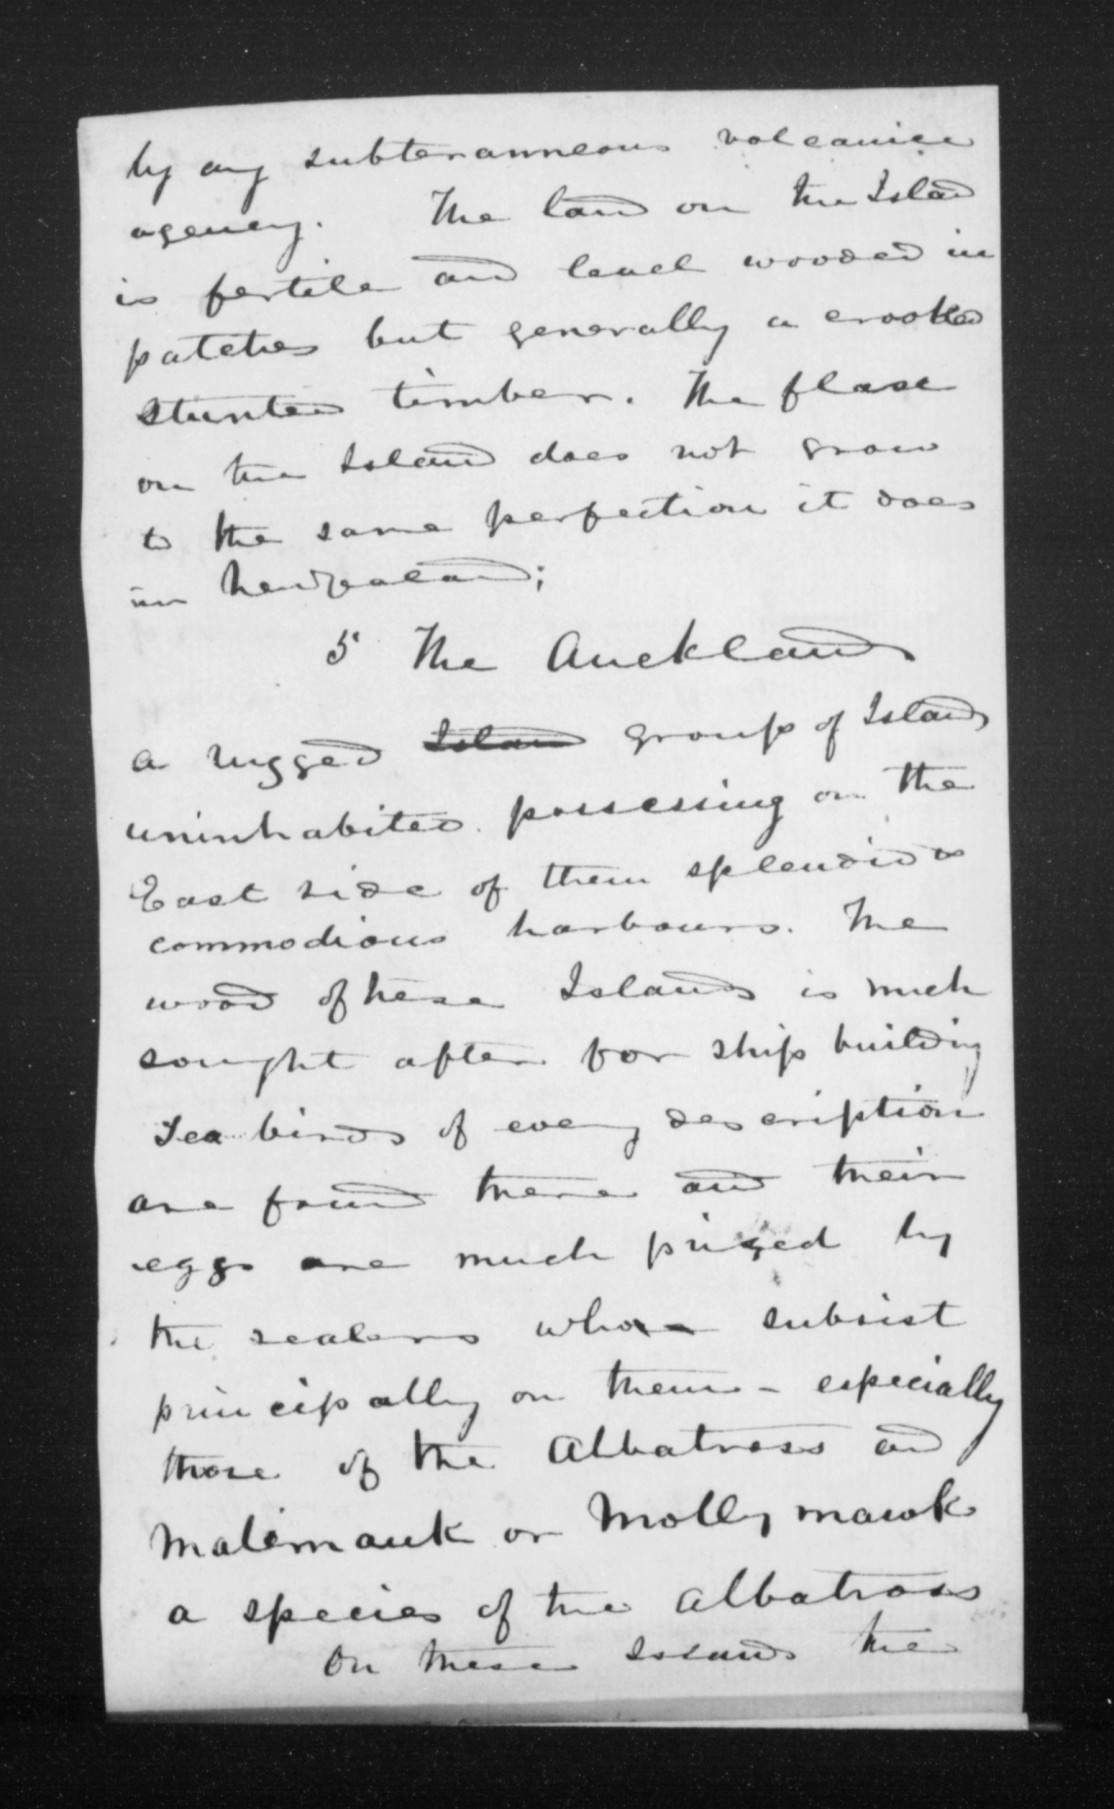 by any subteranneous volcanice
agency. The land on the Island
is fertile and level wooded in
patches but generally a crooked
stunted timber. The flax
on the Island does not grow
to the same perfection it does
in Newzealand;
5 The Aucklands
a rugged Island group of Islands
uninhabited possessing on the
East side of them splendid &
commodious harbours. The
wood of hese Islands is much
sought after for ship building
Sea birds of every description
are found there and their
eggs are much prized by
the sealers who subsist
principally on them - especially
those of the Albatross and
Malimauk or Mollymawk
a species of the Albatross
On these Islands the